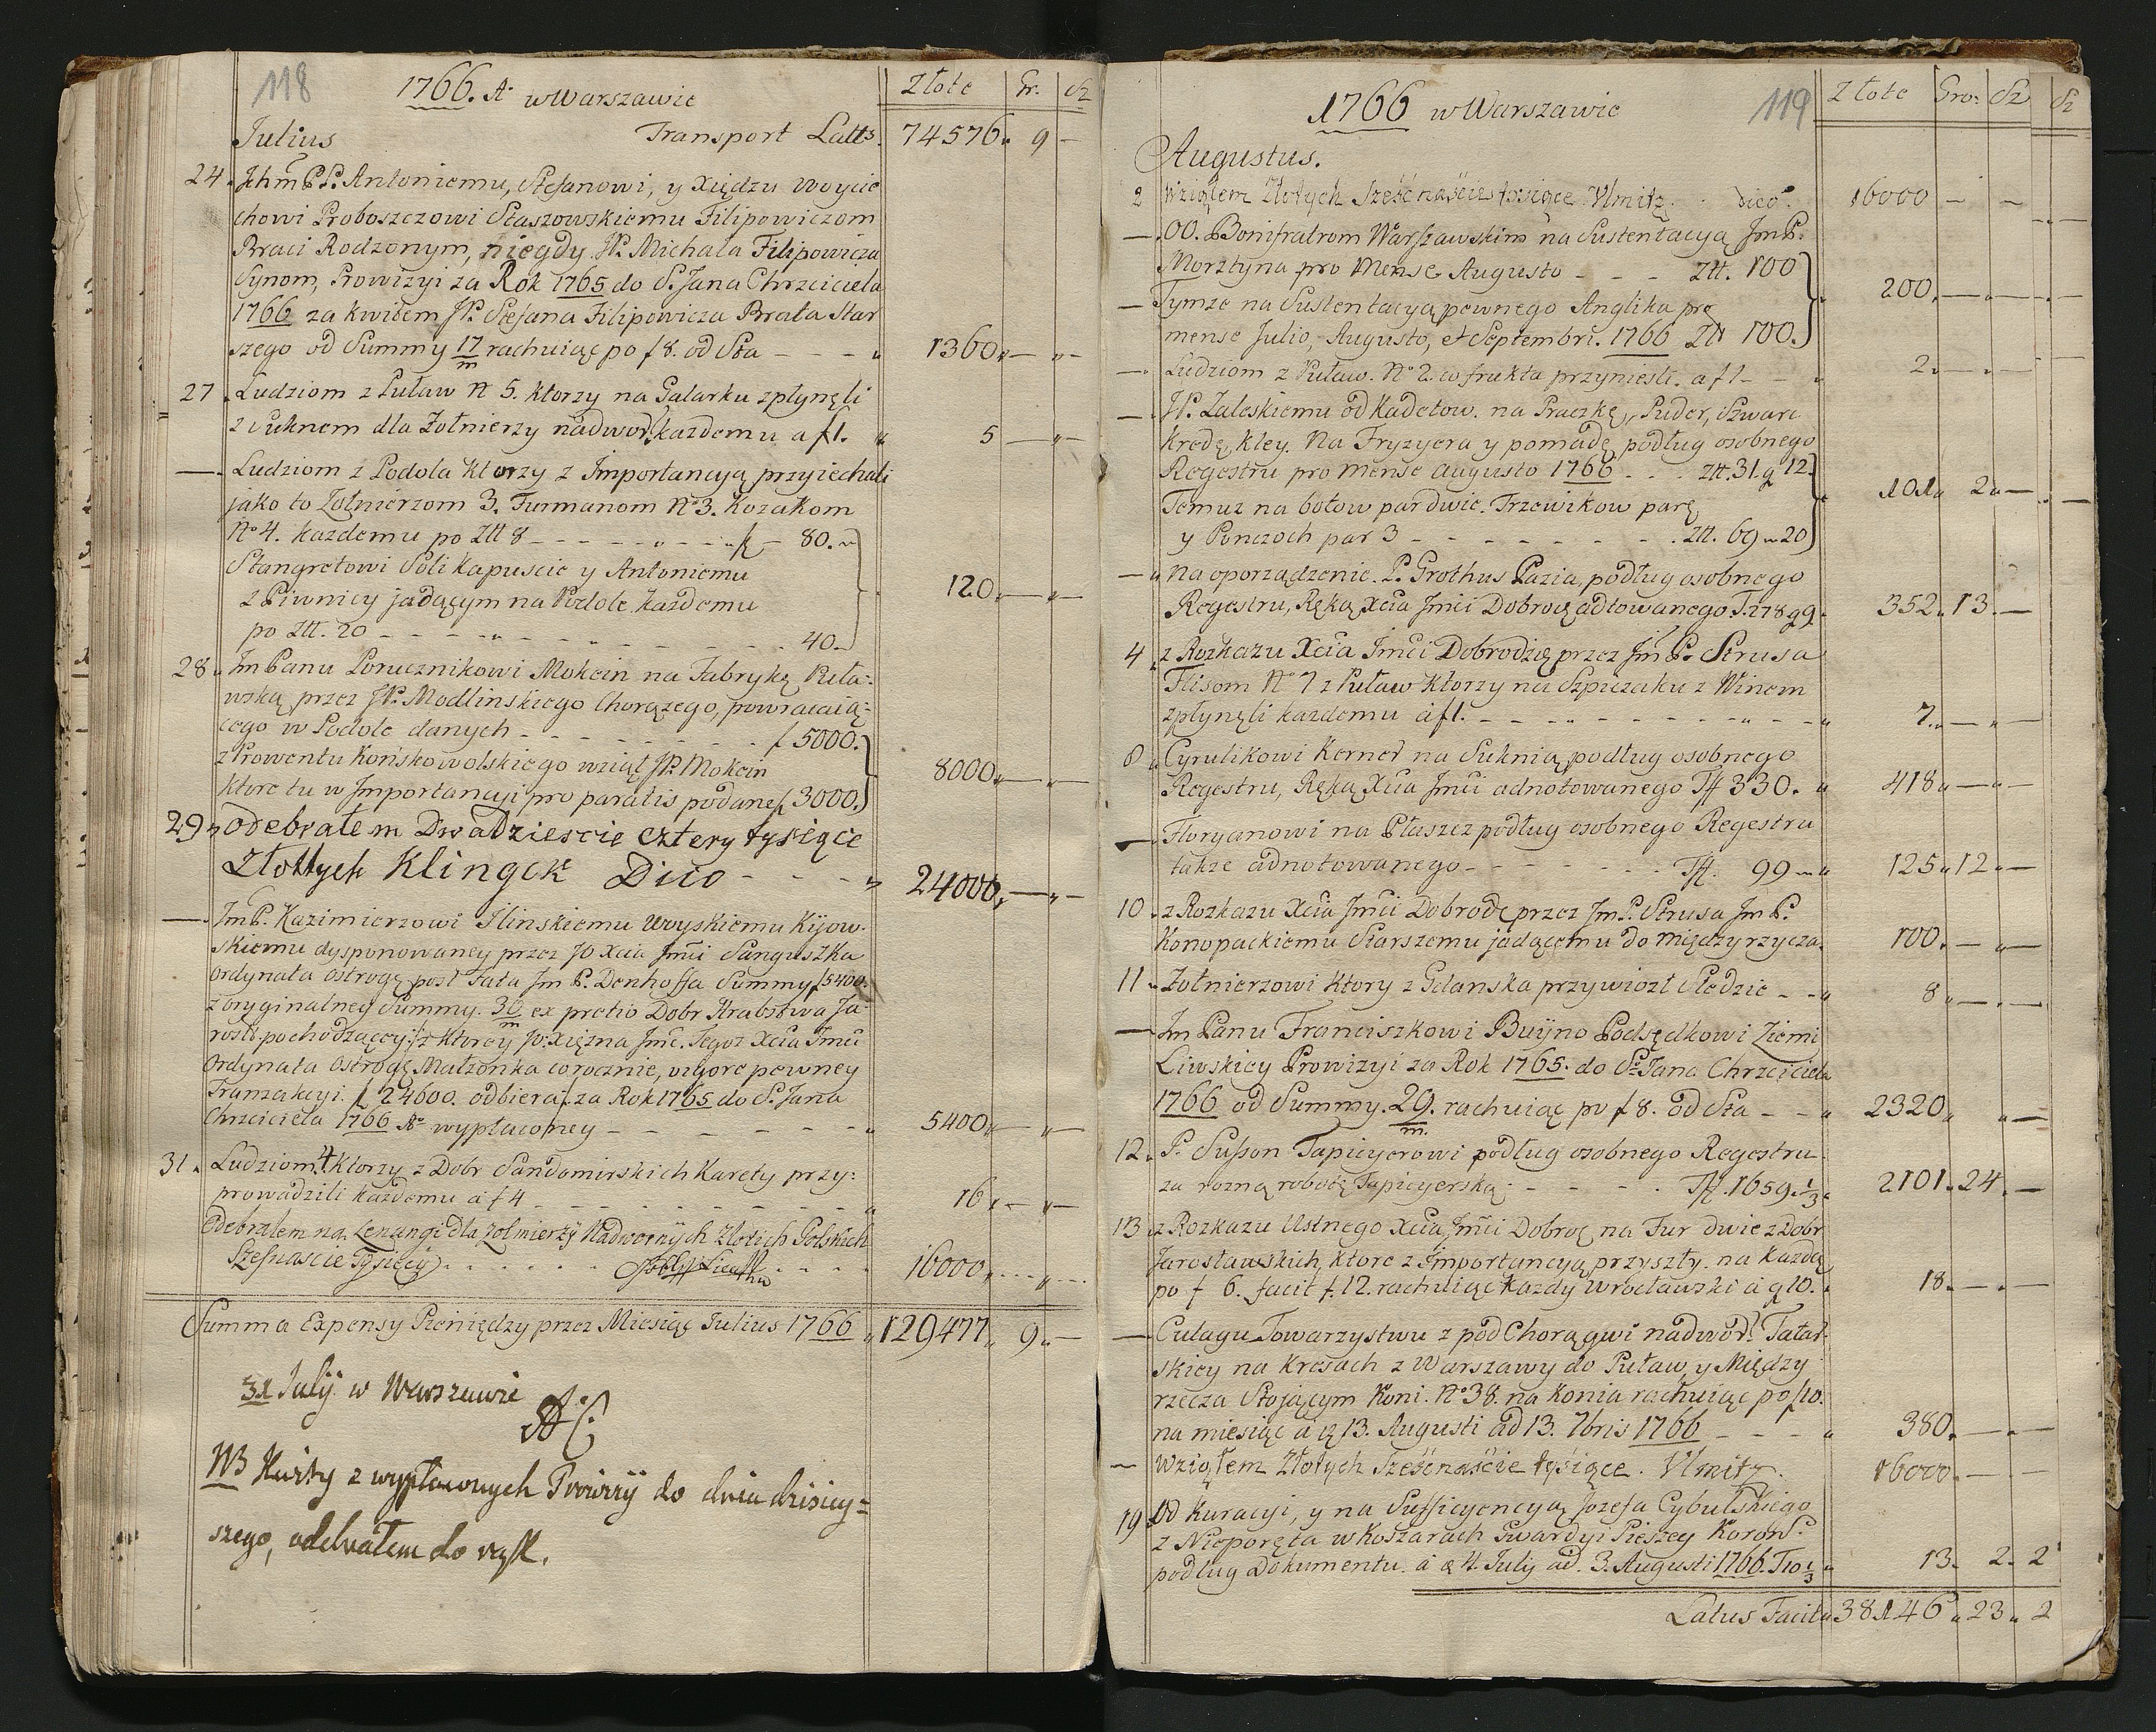 118
1766. A. w Warszawie
Złote Gr. Sz
Julius Transport Latts. 74576 „ 9 —
24. Jchm PP. Antoniemu, Stefanowi, y Xiędzu Woycie
chowi Proboszczowi Staszowskiemu Filipowiczom
Braci Rodzonym, niegdy JP. Michała Filipowicza
Synom, Prowizyi za Rok 1765 do S. Jana Chrzciciela
1766 za kwitem JP. Stefana Filipowicza Brata Star
szego od Summy 17/m rachuiąc po f 8. od Sta — — — „ 1360 „ — „ —
27. Ludziom z Puław N 5. ktorzy na Galarku zpłynęli
z Suknem dla Żołnierzy nadwor: kazdemu a f 1. „ 5 — „ —
—. Ludziom z Podola ktorzy z Importancyą przyiechali
jako to Zołnierzom 3. Furmanom No 3. Kozakom
No 4. kazdemu po Ztt 8 — — — — „ — — f — 80. „
Stangretowi Soli Kapuscie y Antoniemu
z Piwnicy jadącym na Podole kazdemu 120 „ — „ —
po Ztt. 20 — — — „ — — — — — 40.
28. Jm Panu Porucznikowi Mokcin na Fabrykę Puła:
wską przez JP. Modlinskiego Chorązego, powracaią:
cego w Podole danych — — — — — — — f 5000.
z Prowentu Końskowolskiego wziął JP. Mokcin 8000 „ — „ —
ktore tu w Importancyi pro paratis podane f 3000.
29 „ Odebrałem Dwadziescie cztery tysiące
Złottych Klingek Dico — — — „ 24000 „ — „ —
—. Jm P. Kazimierzowi Jlinskiemu Woyskiemu Kijow.
skiemu dysponowaney przez JO Xcia Jmci Sanguszka
Ordynata Ostrogę post Fata Jm P. Denhoffa Summy f 5400.
z oryginalney Summy. 30/m ex pretio Dobr Hrabstwa Ja:
rosł: pochodzącey /: z ktorey JO: Xięzna Jmc. Tegoz Xcia Jmci
Ordynata Ostrogę Małzonka corocznie, vigore pewney
Tranzakcyi. f 24600. odbiera :/ za Rok 1765 do S. Jana
Chrzciciela 1766 Ao wypłaconey — — — — — — „ 5400 „ — „ —
31. Ludziom 4. ktorzy z Dobr Sandomirskich Karety przy:
prowadzili kazdemu a f 4 — — — — — — — — „ 16 „ — „ —
Odebrałem na Lenungi dla zołnierzy Nadwornych Złotych Polskich
Szesnascie Tysięcy . . . . . . . . . . 16000 „ . . . „ . . .
Summa Expensy Pieniędzy przez Miesiąc Julius 1766 „ 129477 „ 9 „ —
31 July w Warszawie
AC
NB Kwity z wypłaconych Prowizij do dnia dzisiey=
szego, odebrałem do rąk.
119
1766 w Warszawie
Złote Gro: Sz Sz
Augustus.
2 Wziąłem Złotych Sześćnaście tysięce Vlmitz. . dico. 16000 — —
—. OO. Bonifratrom Warszawskim na Sustentacyą Jm P.
Morztyna pro Mense Augusto — — — Ztt. 100
— Tymze na Sustentacyą pewnego Anglika pro 200. — „ —
mense Julio, Augusto, et Septembri. 1766 Ztt 100.
—. Ludziom z Puław. No 2. co frukta przyniesli. a f 1 — — „ 2 „ — „ —
—. JP. Zaleskiemu od Kadetow. na Praczkę, Puder, Szwarc
Kredę, kley. Na Fryzyera y pomadę podług osobnego
Regestru pro Mense Augusto 1766 . . . Ztt. 31. g 12.
Temuz na botow par dwie. Trzewikow parę 101 „ 2 „ —
y Ponczoch par 3 — — — — — — — . Ztt. 69 „ 20
— „ Na oporządzenie. P. Grothus Pazia, podług osobnego
Regestru, Ręką Xcia Jmci Dobrod adtowanego. T. 278 g 9. 352 „ 13. —
4. z Rozkazu Xcia Jmci Dobrodzię przez Jm P. Strusa
Flisom No 7 z Puław ktorzy na Szpiczaku z Winem
zpłynęli kazdemu a f 1. — — — „ — — — — — — „ — — „ 7. „ — „ —
8 „ Cyrulikowi Kerner na Suknią podług osobnego
Regestru, Ręką Xcia Jmci adnotowanego Tf 330. „ 418 „ — „ —
— Floryanowi na Płaszcz podług osobnego Regestru
takze adnotowanego — — — — — — Tf. 99 — „ 125 „ 12 „ —
10. z Rozkazu Xcia Jmci Dobrodę przez Jm P. Strusa Jm P.
Konopackiemu Starszemu jadącemu do Międzyrzycza. 100. — „ —
11 „ Zołnierzowi ktory z Gdanska przywiozł Sledzie — — „ 8 „ — . —
— Jm Panu Franciszkowi Buyno Podsędkowi Ziemi
Liwskiey Prowizyi za Rok 1765. do S. Jana Chrzciciela
1766 od Summy. 29/m. rachuiąc po f 8. od Sta — — „ 2320 „ „ —
12. P. Susson Tapicyerowi podług osobnego Regestru.
za rozną robotę Tapicyerską. — — — — . Tf. 1659. 1/3 „ 2101 „ 24 „ —
13. z Rozkazu Ustnego Xcia Jmci Dobroę na Fur dwie z Dobr
Jarosławskich, ktore z Importancyą przyszły. na kazdą
po f 6. facit f. 12. rachuiąc kazdy wrocławski a g 10. „ 18. — . —
— Culagu Towarzystwu z pod Chorągwi nadwor: Tatar.
skiey na Kresach z Warszawy do Puław y Między
rzecza Stojącym Koni. No 38. na konia rachuiąc po f 10.
na miesiąc a 13. Augusti ad 13. 7bris 1766 — — — „ 380. — . —
— Wziąłem Złotych Sześćnaście tysiące. Vlmitz. 16000. — —
19 Od Kuracyi, y na Sufficyencyą Jozefa Cybulskiego
z Nieporęta w Koszarach Gwardyi Pieszey Koron:
podług Dokumentu. a 4. July ad. 3. Augusti 1766. T 10 1/3 „ 13. 2. 2
Latus Facit „ 38146 „ 23 „ 2